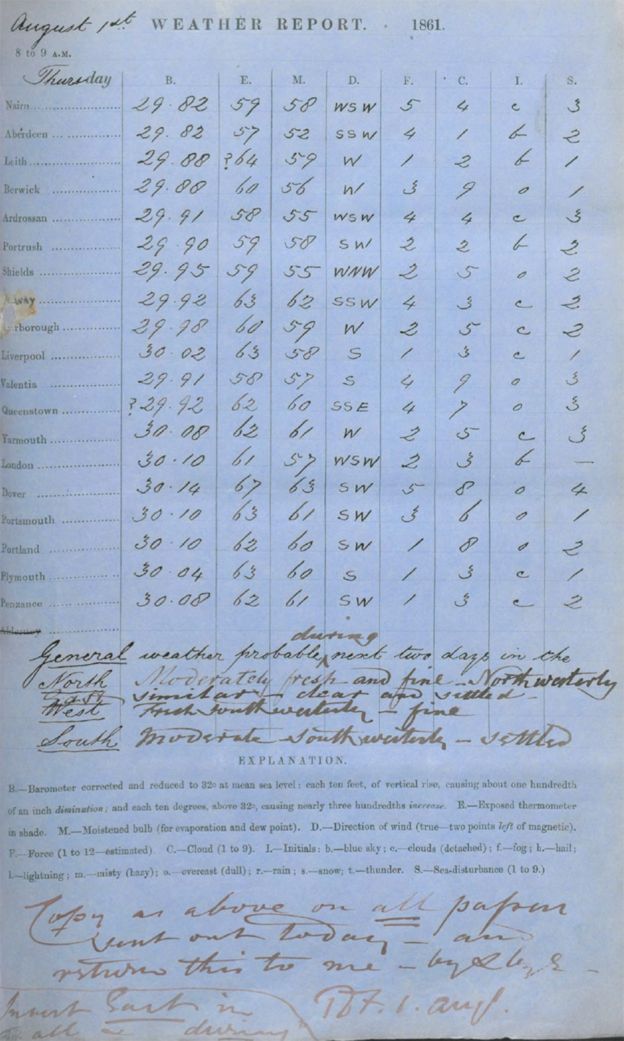 August 1st WEATHER REPORT. 1861.
8 to 9 A.M.
Thursday B. E. M. D. F. C. I. S.
Nairn 29.82 59 58 WSW 5 4 c 3
Aberdeen 29.82 57 52 SSW 4 1 b 2
Leith 29.88 ?64 59 W 1 2 b 1
Berwick 29.88 60 56 W 3 9 o 1
Ardrossan 29.91 58 55 WSW 4 4 c 3
Portrush 29.90 59 58 SW 2 2 b 2
Shields 29.95 59 55 WNW 2 5 o 2
29.92 63 62 SSW 4 3 c 2
rborough 29.98 60 59 W 2 5 c 2
Liverpool 30.02 63 58 S 1 3 c 1
Valentia 29.91 58 57 S 4 9 o 3
Queenstown ?29.92 62 60 SSE 4 7 o 3
Yarmouth 30.08 62 61 W 2 5 c 3
London 30.10 61 57 WSW 2 3 b —
Dover 30.14 67 63 SW 5 8 o 4
Portsmouth 30.10 63 61 SW 3 6 o 1
Portland 30.10 62 60 SW 1 8 o 2
Plymouth 30.04 63 60 S 1 3 c 1
Penzance 30.08 62 61 SW 1 3 c 2
Alderney
General weather probable during next two days in the
North Moderately fresh and fine - Northwesterly
East similar - clear and settled -
West Fresh Southwesterly - fine
South Moderate Southwesterly - settled
EXPLANATION.
B.—Barometer corrected and reduced to 32° at mean sea level; each ten feet, of vertical rise, causing about one hundredth
of an inch diminution; and each ten degrees, above 32°, causing nearly three hundredths increase. E.—Exposed thermometer
in shade. M.—Moistened bulb (for evaporation and dew point). D.—Direction of wind (true—two points left of magnetic).
F.—Force (1 to 12—estimated) C.—Cloud (1 to 9). I.—Initials: b.—blue sky; c.—clouds (detached); f.—fog; h.—hail;
l.—lightning; m.—misty (hazy); o.—overcast (dull); r.—rain; s.—snow; t.—thunder. S.—Sea-disturbance (1 to 9.)
Copy as above on all papers
sent out today - and
return this to me - by &
Insert East in 1. Aug.
all during